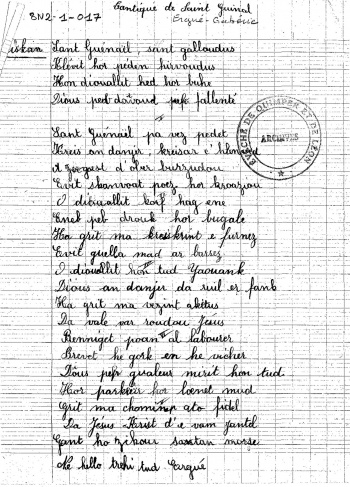 Cantique de Saint Guinal
8N2-1-017
Ergué-Gabéric
Diskan
Sant Guénaël, sant galloudus
Klévit hor péden hirvoudus
Hon diouallit hed hor buhe
Dious peb davoud peb fallenté
Sant Guénaël pa vez pedet
Kreis an danjer, kreisar c'hlenved
d'ober burzudou
Evit skanvaat poez hor kroaziou
O diouallit korf hag ene
Enep peb drouk hor bugale
Ha grit ma kreskint e furnez
Evit guella mad ar barrez
O diouallit hon tud Yaouank
Dious an danjer da ruil er fank
Ha grit ma vezint aketus
Da vale var roudou Jésus
Benniget poan al labourer
Brevet he gorf en he vicher
Dious peb gwaleur mirit hon tud
Hor parkeier hor loened mud
Grit ma chomimp ato fidel
Da Jésus Krist d'e vam santel
Gant ho zikour
He hello trehi tud Ergué
EVÊCHÉ DE QUIMPER ET DE LÉON
ARCHIVES